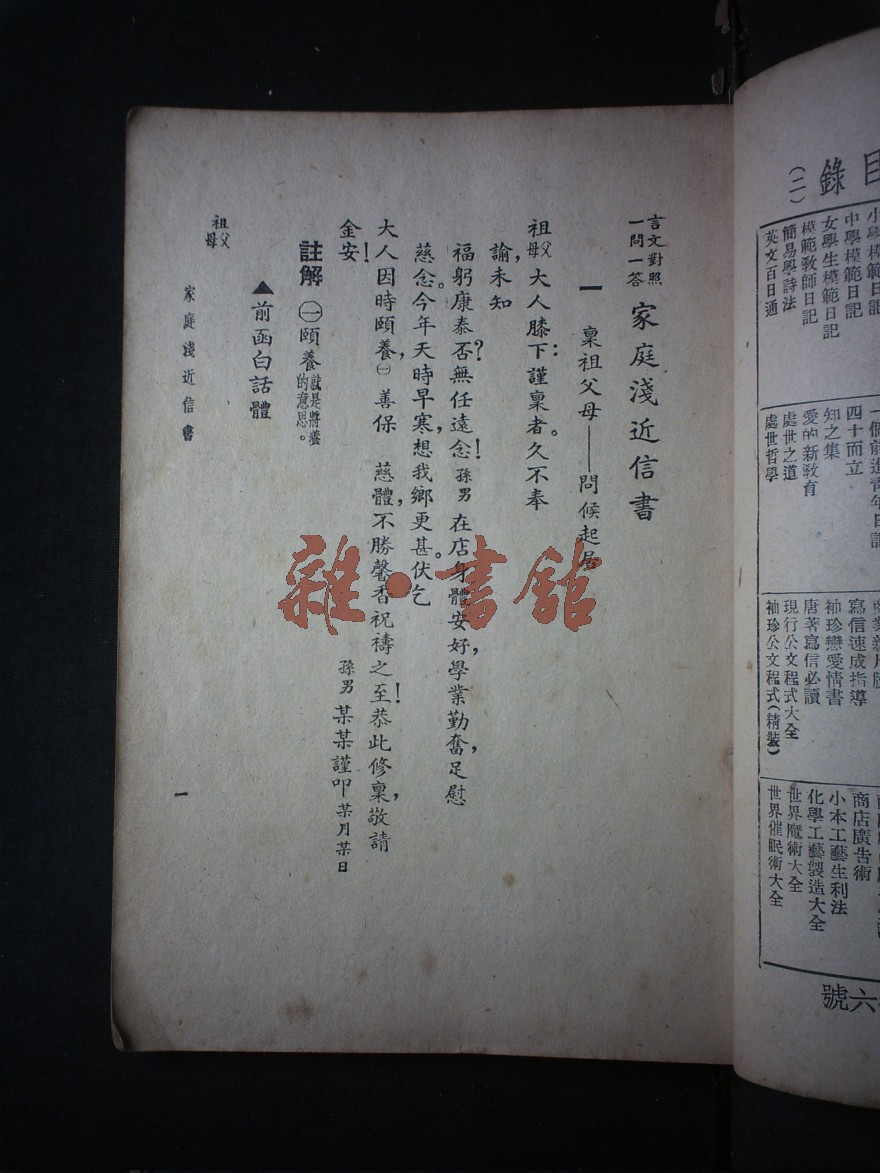 言文對照
一問一答
家庭淺近信書
一 稟祖父母——問候起居
祖父母大人膝下：謹稟者。久不奉
諭，未知
福躬康泰否？無任遠念！孫男在店身體安好，學業勤奮，足慰
慈念。今年天時早寒，想我鄉更甚。伏乞
大人因時頤養，㊀善保 慈體，不勝馨香祝禱之至！恭此修稟，敬請
金安！
孫男 某某謹叩 某月某日
註解 ㊀頤養就是將養的意思。
▲前函白話體
祖父母
家庭淺近信書
一
雜·書館
目錄
(二)
小學模範日記
中學模範日記
女學生模範日記
模範教師日記
簡易學詩法
英文百日通
一個前進青年日記
四十而立
知之集
愛的新教育
處世之道
處世哲學
寫信速成指導
袖珍戀愛情書
唐著寫信必讀
現行公文程式大全
袖珍公文程式(精裝)
商店廣告術
小本工藝生利法
化學工藝製造大全
世界魔術大全
世界催眠術大全
六號